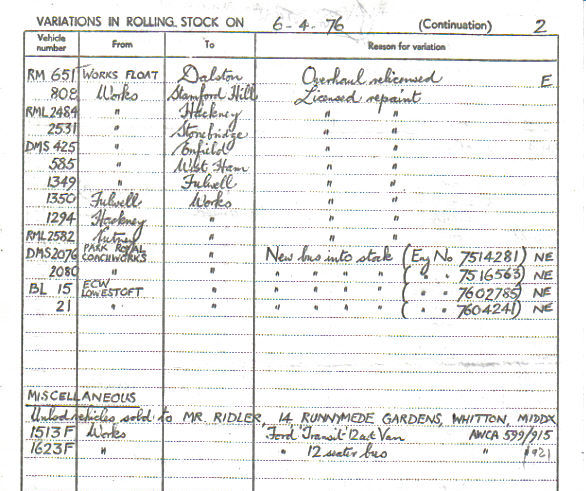 VARIATIONS IN ROLLING STOCK ON 6-4-76 (Continuation) 2
Vehicle number From To Reason for variation
RM 651 WORKS FLOAT Dalston Overhaul relicensed E
808 Works Stamford Hill Licensed repaint
RML 2484 " Hackney " "
2531 " Stonebridge " "
DMS 425 " Enfield " "
585 " West Ham " "
1349 " Fulwell " "
1350 Fulwell Works " "
1294 Hackney " " "
RML 2582 Putney " " "
DMS 2076 PARK ROYAL COACHWORKS " New bus into stock (Eng No 7514281) NE
2080 " " " " " " ( " " 7516563) NE
BL 15 ECW LOWESTOFT " " " " " ( " " 7602785) NE
21 " " " " " " ( " " 7604241) NE
MISCELLANEOUS
vehicles sold to MR. RIDLER, 14 RUNNYMEDE GARDENS, WHITTON, MIDDX
1513F Works Ford Transit 12 Van AWCA 599/915
1623F " " 12 seater bus " 921